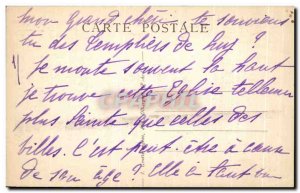 mon grand chéri te souviens
tu des Templiers de Huy ?
CARTE POSTALE
1)
Je monte souvent là haut
je trouve cette Eglise tellement
plus Sainte que celles des
villes. C'est peut-être à cause
de son âge ? Elle a tant